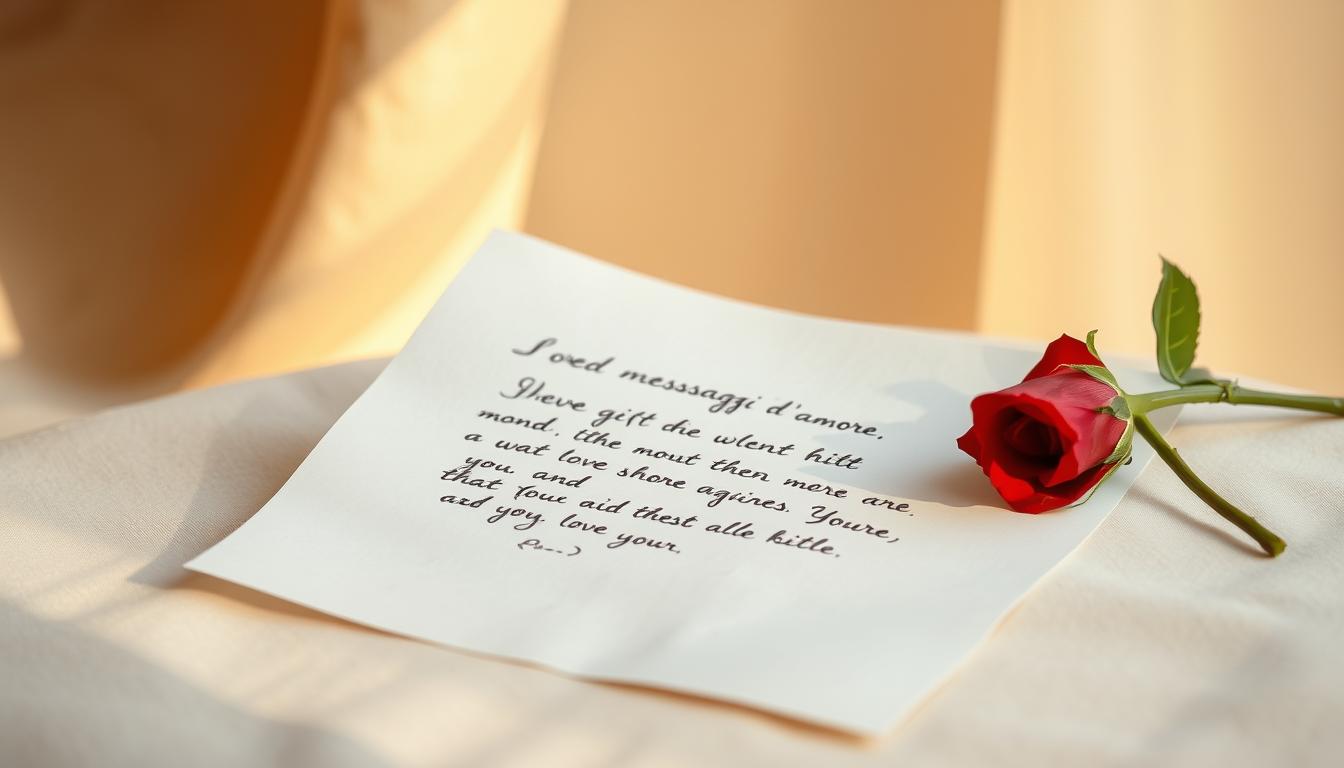 Loved messsaggi d'amore.
Iheve gift die wlent hitt
mond. tthe mout then mere are.
a wat love shore agires. Youre,
you and
that four aid thest alle kitle.
ard yoy. love your.